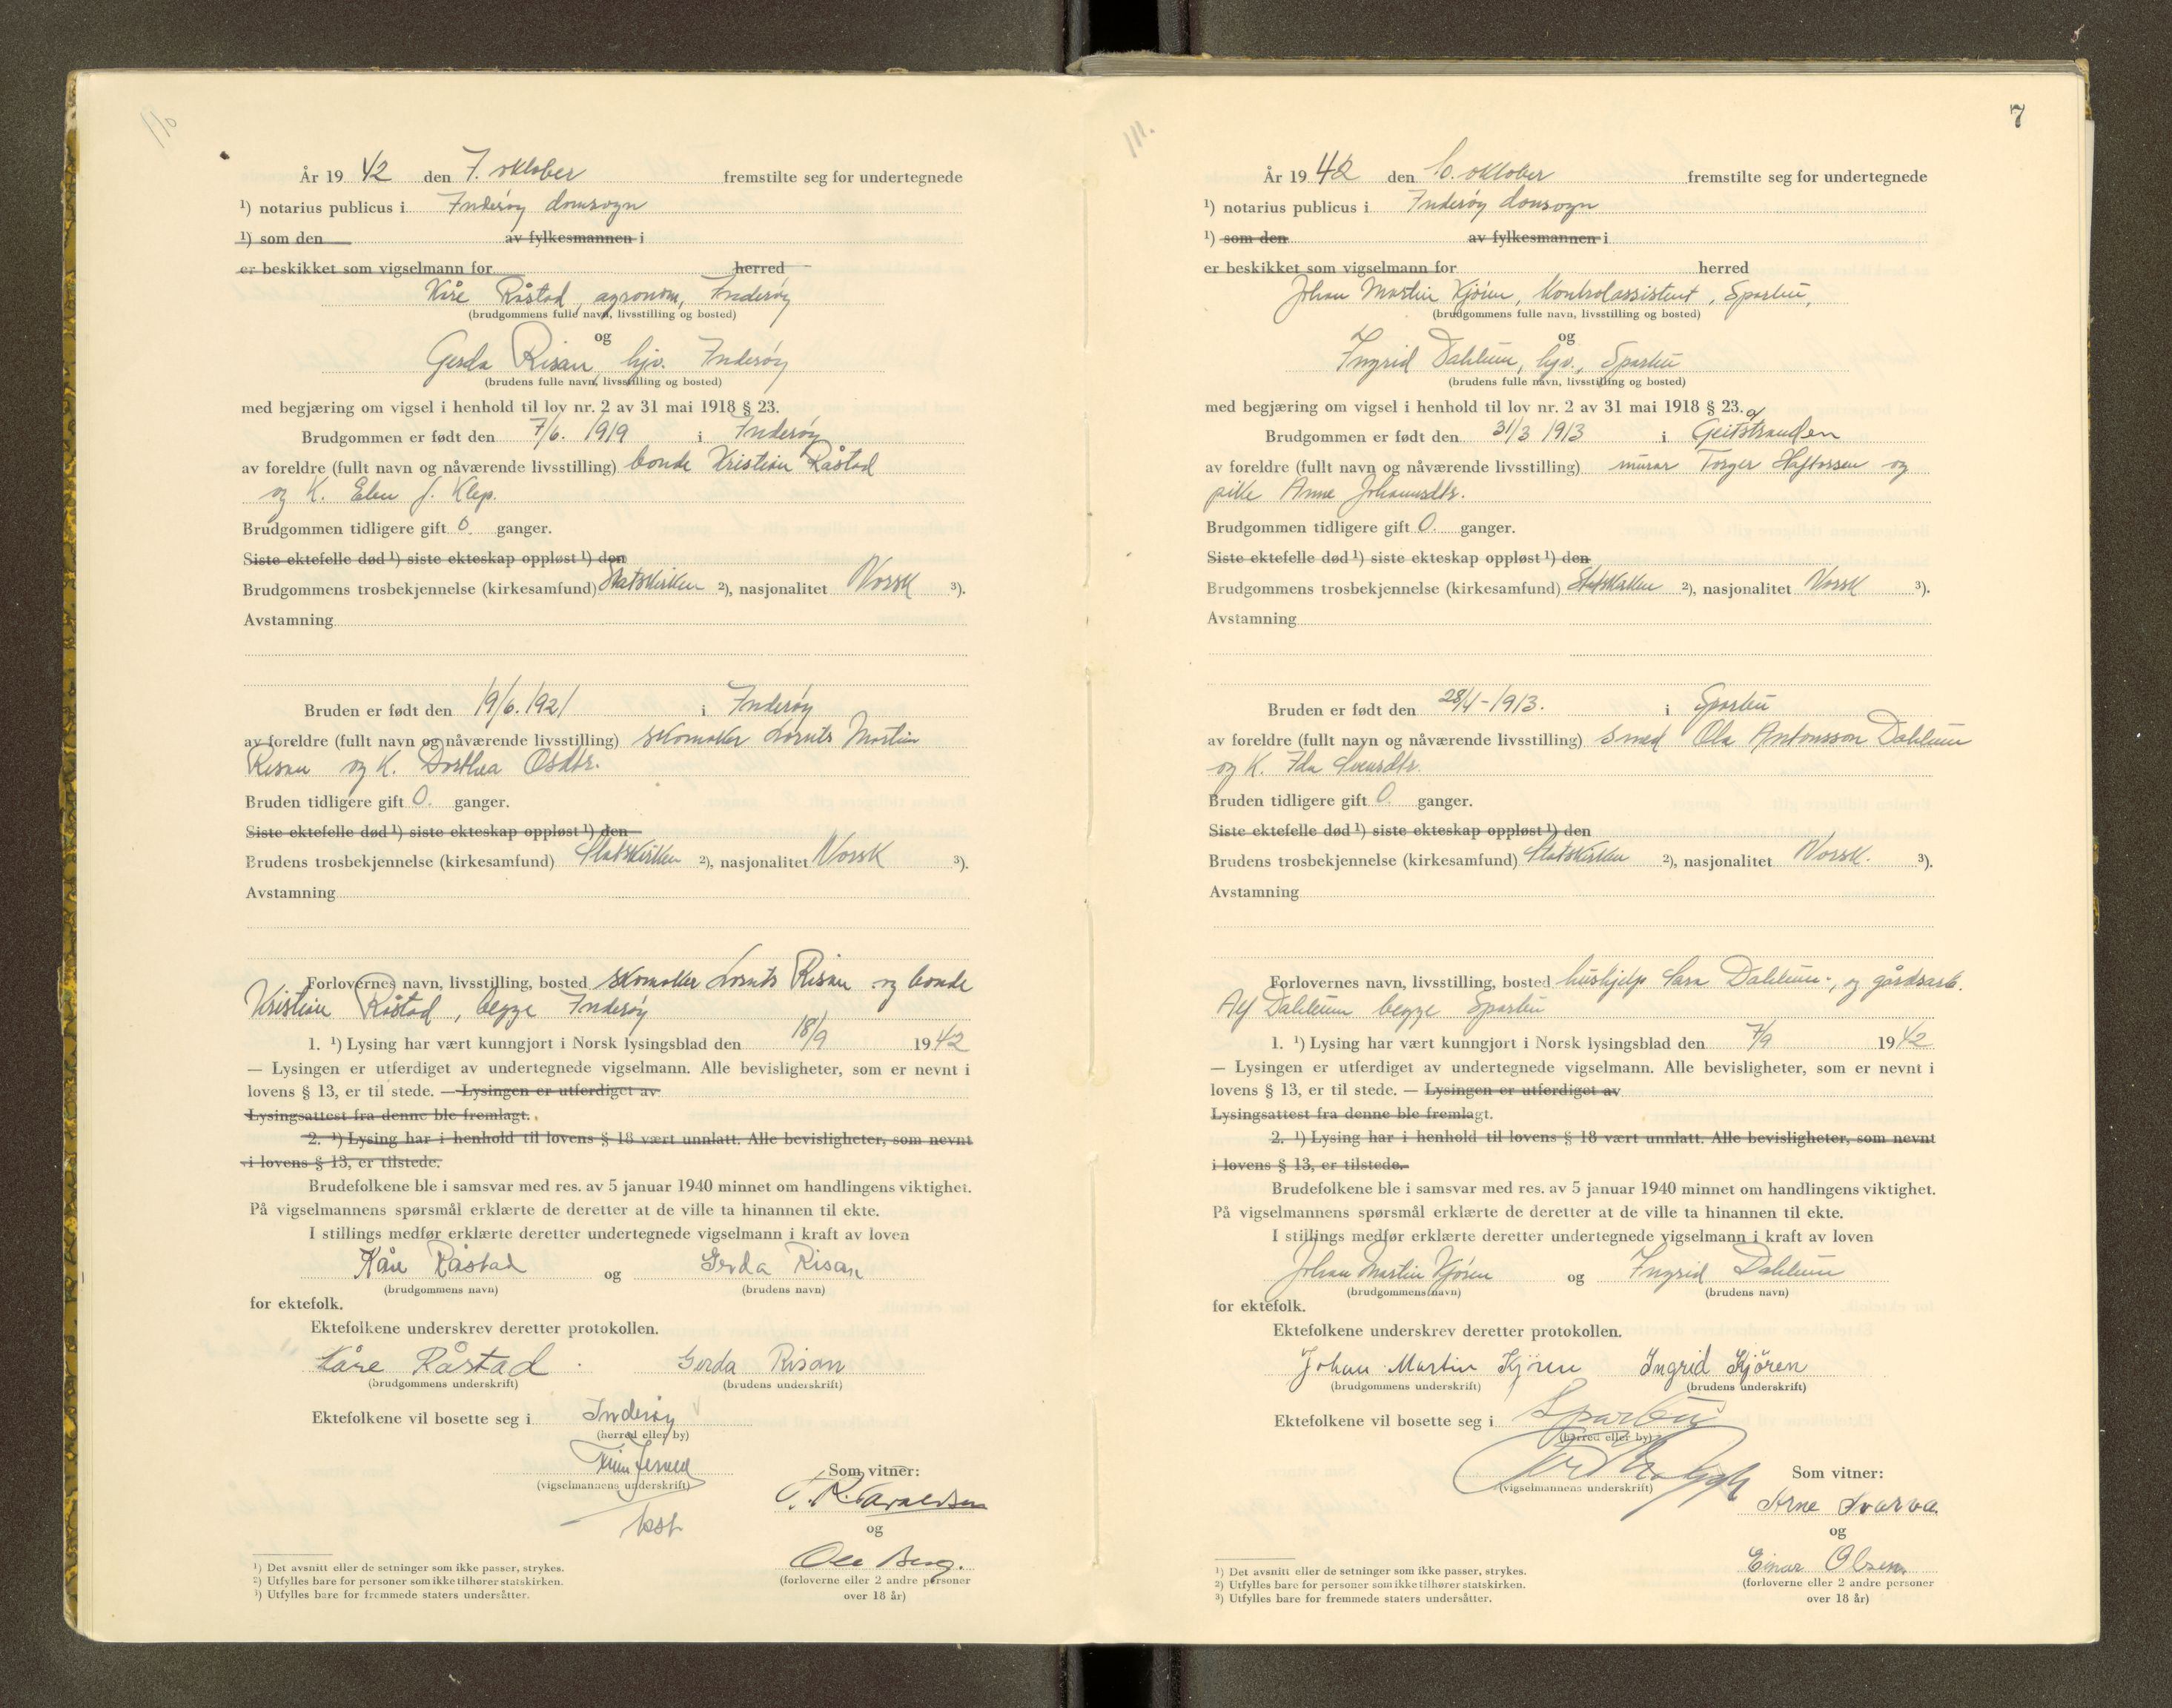 110
År 1942 den 7. oktober fremstilte seg for undertegnede
¹) notarius publicus i Inderøy domsogn
¹) som den av fylkesmannen i
er beskikket som vigselmann for herred
Kåre Råstad, agronom, Inderøy
(brudgommens fulle navn, livsstilling og bosted)
og
Gerda Risan, hjv. Inderøy
(brudens fulle navn, livsstilling og bosted)
med begjæring om vigsel i henhold til lov nr. 2 av 31 mai 1918 § 23.
Brudgommen er født den 7/6. 1919 i Inderøy
av foreldre (fullt navn og nåværende livsstilling) bonde Kristian Råstad
og K. Elen f. Klep.
Brudgommen tidligere gift 0 ganger.
Siste ektefelle død ¹) siste ekteskap oppløst ¹) den
Brudgommens trosbekjennelse (kirkesamfund) Statskirken ²), nasjonalitet Norsk ³).
Avstamning
Bruden er født den 19/6. 1921 i Inderøy
av foreldre (fullt navn og nåværende livsstilling) skomaker Lornts Martin
Risan og K. Dorthea Olsdtr.
Bruden tidligere gift 0. ganger.
Siste ektefelle død ¹) siste ekteskap oppløst ¹) den
Brudens trosbekjennelse (kirkesamfund) Statskirken ²), nasjonalitet Norsk ³).
Avstamning
Forlovernes navn, livsstilling, bosted skomaker Lornts Risan og bonde
Kristian Råstad, begge Inderøy
1. ¹) Lysing har vært kunngjort i Norsk lysingsblad den 18/9 1942
— Lysingen er utferdiget av undertegnede vigselmann. Alle bevisligheter, som er nevnt i
lovens § 13, er til stede. — Lysingen er utferdiget av
Lysingsattest fra denne ble fremlagt.
2. ¹) Lysing har i henhold til lovens § 18 vært unnlatt. Alle bevisligheter, som nevnt
i lovens § 13, er tilstede.
Brudefolkene ble i samsvar med res. av 5 januar 1940 minnet om handlingens viktighet.
På vigselmannens spørsmål erklærte de deretter at de ville ta hinannen til ekte.
I stillings medfør erklærte deretter undertegnede vigselmann i kraft av loven
Kåre Råstad og Gerda Risan
(brudgommens navn) (brudens navn)
for ektefolk.
Ektefolkene underskrev deretter protokollen.
Kåre Råstad Gerda Risan
(brudgommens underskrift) (brudens underskrift)
Ektefolkene vil bosette seg i Inderøy
(herred eller by)
Som vitner:
(vigselmannens underskrift)
og
Ole Berg.
(forloverne eller 2 andre personer
over 18 år)
¹) Det avsnitt eller de setninger som ikke passer, strykes.
²) Utfylles bare for personer som ikke tilhører statskirken.
³) Utfylles bare for fremmede staters undersåtter.
7
111.
År 1942 den 6. oktober fremstilte seg for undertegnede
¹) notarius publicus i Inderøy domsogn
¹) som den av fylkesmannen i
er beskikket som vigselmann for herred
Johan Martin Kjøren, Kontrolassistent, Sparbu,
(brudgommens fulle navn, livsstilling og bosted)
og
Ingrid Dahlum, hjv., Sparbu
(brudens fulle navn, livsstilling og bosted)
med begjæring om vigsel i henhold til lov nr. 2 av 31 mai 1918 § 23.
Brudgommen er født den 31/3 1913 i Geitstranden
av foreldre (fullt navn og nåværende livsstilling) murar Torger Haftorsen og
pike Anne Johannsdtr.
Brudgommen tidligere gift 0. ganger.
Siste ektefelle død ¹) siste ekteskap oppløst ¹) den
Brudgommens trosbekjennelse (kirkesamfund) Statskirken ²), nasjonalitet Norsk ³).
Avstamning
Bruden er født den 28/4-1913. i Sparbu
av foreldre (fullt navn og nåværende livsstilling) smed Ola Antonsson Dahlum
og K. Ida Svensdtr.
Bruden tidligere gift 0. ganger.
Siste ektefelle død ¹) siste ekteskap oppløst ¹) den
Brudens trosbekjennelse (kirkesamfund) Statskirken ²), nasjonalitet Norsk. ³).
Avstamning
Forlovernes navn, livsstilling, bosted hushjelp Sara Dahlum, og gårdsarb.
Alf Dahlum begge Sparbu
1. ¹) Lysing har vært kunngjort i Norsk lysingsblad den 7/9 1942
— Lysingen er utferdiget av undertegnede vigselmann. Alle bevisligheter, som er nevnt i
lovens § 13, er til stede. — Lysingen er utferdiget av
Lysingsattest fra denne ble fremlagt.
2. ¹) Lysing har i henhold til lovens § 18 vært unnlatt. Alle bevisligheter, som nevnt
i lovens § 13, er tilstede.
Brudefolkene ble i samsvar med res. av 5 januar 1940 minnet om handlingens viktighet.
På vigselmannens spørsmål erklærte de deretter at de ville ta hinannen til ekte.
I stillings medfør erklærte deretter undertegnede vigselmann i kraft av loven
Johan Martin Kjøren og Ingrid Dahlum
(brudgommens navn) (brudens navn)
for ektefolk.
Ektefolkene underskrev deretter protokollen.
Johan Martin Kjøren Ingrid Kjøren
(brudgommens underskrift) (brudens underskrift)
Ektefolkene vil bosette seg i Sparbu
(herred eller by)
Som vitner:
(vigselmannens underskrift)
Arne Svarva
og
Einar Olsen
(forloverne eller 2 andre personer
over 18 år)
¹) Det avsnitt eller de setninger som ikke passer, strykes.
²) Utfylles bare for personer som ikke tilhører statskirken.
³) Utfylles bare for fremmede staters undersåtter.